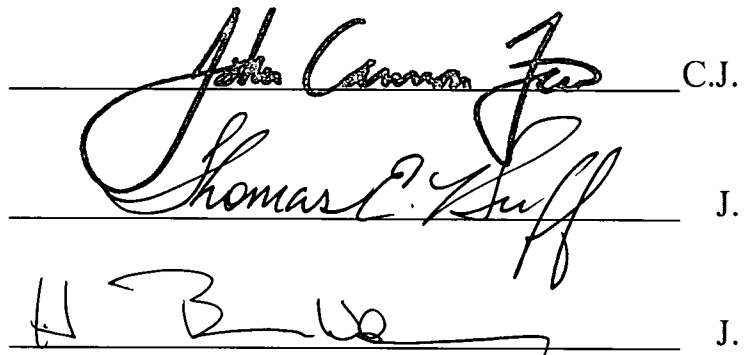 John Cannon Few C.J.
Thomas E. Huff J.
H B J.